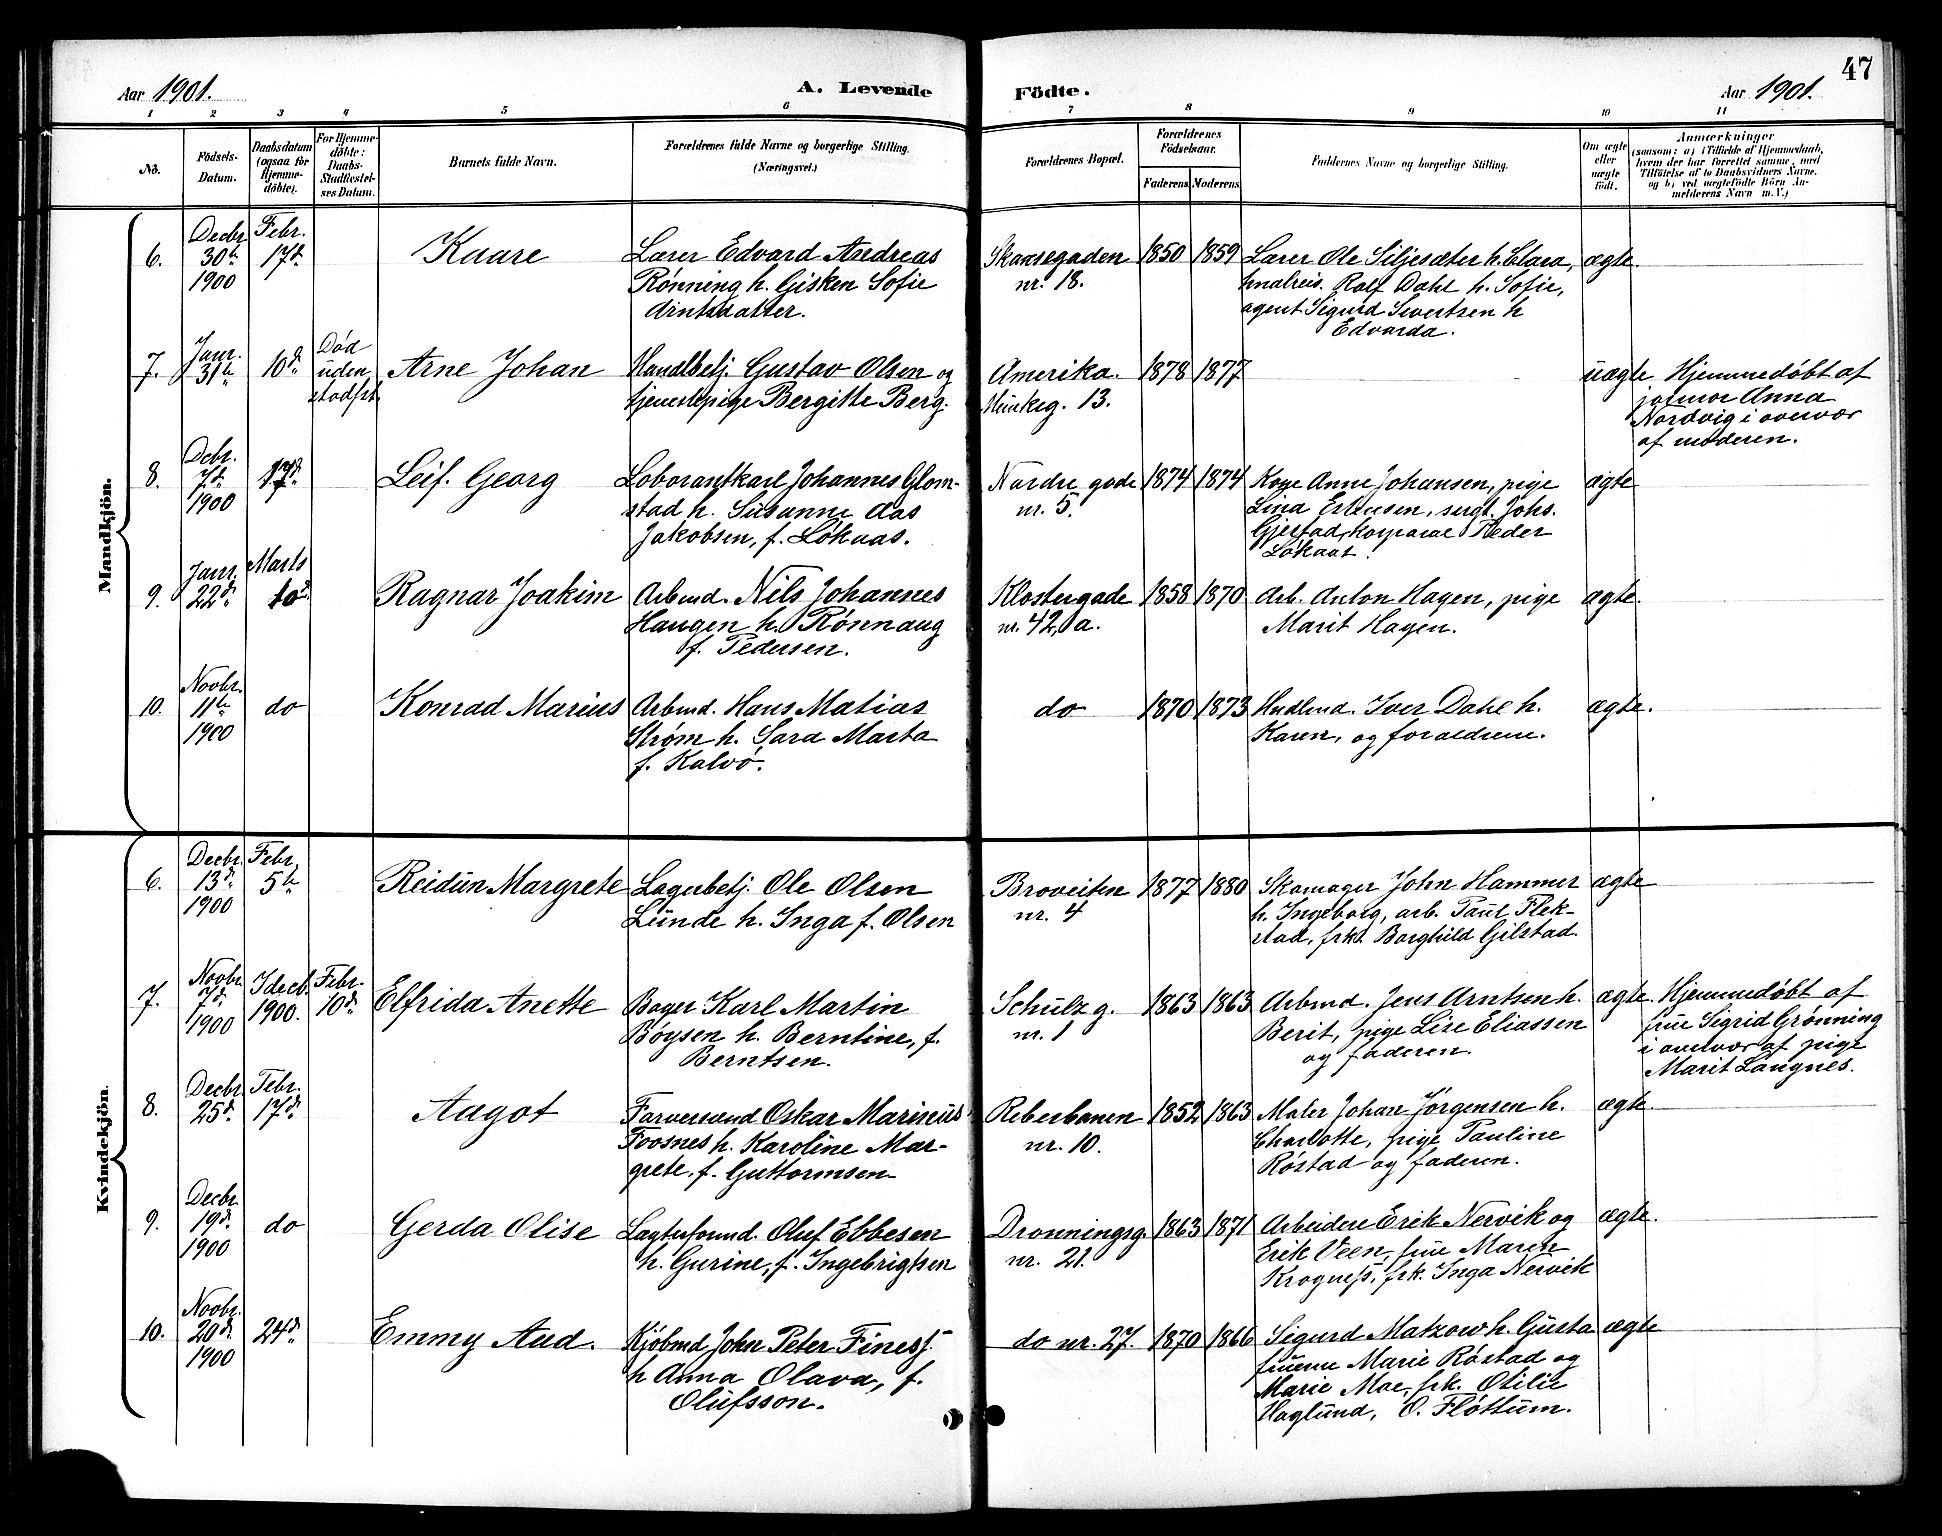 47
Aar 1901.
A. Levende
Födte.
Aar 1901.
1 2 3 4 5 6 7 8 9 10 11
No.
Födsels-
Datum.
Daabsdatum
(ogsaa for
Hjemme-
döbte).
For Hjemme-
döbte:
Daabs-
Stadfæstel-
ses Datum.
Barnets fulde Navn.
Forældrenes fulde Navne og borgerlige Stilling.
(Næringsvei.)
Forældrenes Bopæl.
Forældrenes
Födselsaar.
Faderens
Moderens
Faddernes Navne og borgerlige Stilling.
Om ægte
eller
uægte
födt.
Anmærkninger
(saasom: a) i Tilfælde af Hjemmedaab,
hvem der har forrettet samme, med
Tilföielse af to Daabsvidners Navne,
og b) ved uægtefödte Börn An-
melderens Navn m. V.)
Mandkjön.
6.
Decbr.
30te
1900
Febr.
17d.
Kaare
Lærer Edvard Andreas
Rønning h. Gisken Sofie
Arntsdatter.
Skansegaden
nr. 18.
1850
1859
Lærer Ole Siljesæter h. Clara,
Rolf Dahl h. Sofie,
agent Sigurd Sivertsen h
Edvarda.
ægte.
7.
Janr.
31te
10d.
Død
uden
stadfst.
Arne Johan
Handlbetj. Gustav Olsen og
tjenestepige Bergitte Berg.
Amerika.
Munkeg. 13.
1878
1877
uægte.
Hjemmedøbt af
jofmor Anna
Nordvig i overvær
af moderen.
8.
Debr.
7d.
1900
17d.
Leif Georg
Loborantkarl Johannes Glom-
stad h. Susanne
Jakobsen, f. Løkaas.
Nordre gade
nr. 5.
1874
1874
Kone Anne Johansen, pige
Lina Erlensen, sergt. Johs.
Gjestad, korporal Peder
Løkaas.
ægte
9.
Janr.
22d.
Marts
10d.
Ragnar Joakim
Arbmd. Nils Johannes
Haugen h. Rønnaug
f. Pedersen.
Klostergade
nr. 42, a.
1858
1870
Arb. Anton Hagen, pige
Marit Hagen.
ægte.
10.
Novbr.
11te
1900
do
Konrad Marius
Arbmd. Hans Matias
Strøm h. Sara Marta
f. Kalvø.
do
1870
1873
Hndlmd. Iver Dahl h.
Karen, og forældrene.
ægte.
Kvindekjön.
6.
Decbr.
13d.
1900
Febr.
5te
Reidun Margrete
Lagerbetj. Ole Olsen
Lunde h. Inga f. Olsen
Broveiten
nr. 4
1877
1880
Skomager John Hammer
h. Ingeborg, arb. Paul Flek-
stad, frk. Borghild Gilstad.
ægte
7.
Novbr.
7d.
1900
7decb.
1900.
Febr.
10d.
Elfrida Anette
Bager Karl Martin
Bøysen h. Berntine, f.
Berntsen.
Schulz g.
nr. 1
1863
1863
Arbmd. Jens Arntsen h.
Berit, pige Lise Eliassen
og faderen.
ægte.
Hjemmedøbt af
frue Sigrid Grønning
i overvær af pige
Marit Langnes.
8.
Decbr.
25d.
Febr.
17d.
Aagot
Farversvend Oskar Marinus
Foosnes h. Karoline Mar-
grete, f. Guttormsen
Reberbanen
nr. 10.
1852
1863
Maler Johan Jørgensen h.
Charlotte, pige Pauline
Røstad og faderen.
ægte.
9.
Decbr.
19d.
1900
do
Gerda Olise
Oluf Ebbesen
h. Gurine, f. Ingebrigtsen
Dronningsg.
nr. 21.
1863
1871
Arbeidere Erik Nervik og
Erik Veen, frue Maren
Krogness, frk. Inga Nervik
ægte.
10.
Novbr.
20d.
1900
24d.
Emmy Aud.
Kjøbmd John Peter Finess
h Anna Olava, f.
Olufsson.
do nr. 27.
1870
1866
Sigurd Matzow h. Gusta
fruerne Marie Røstad og
Marie Moe, frk. Otilie
Haglund, O. Fløttum.
ægte